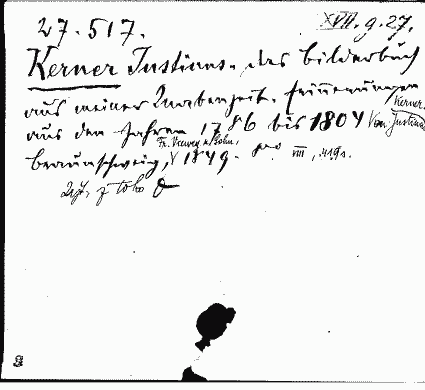 27.517. XVII.g.27.
Kerner Justinus. das Bilderbuch
aus meiner Knabenzeit. Erinnerungen
aus den Jahren 1786 bis 1804 Von Justinus Kerner.
Braunschweig, Fr. Vieweg u. Sohn, 1849. 8º. VIII, 419 s.